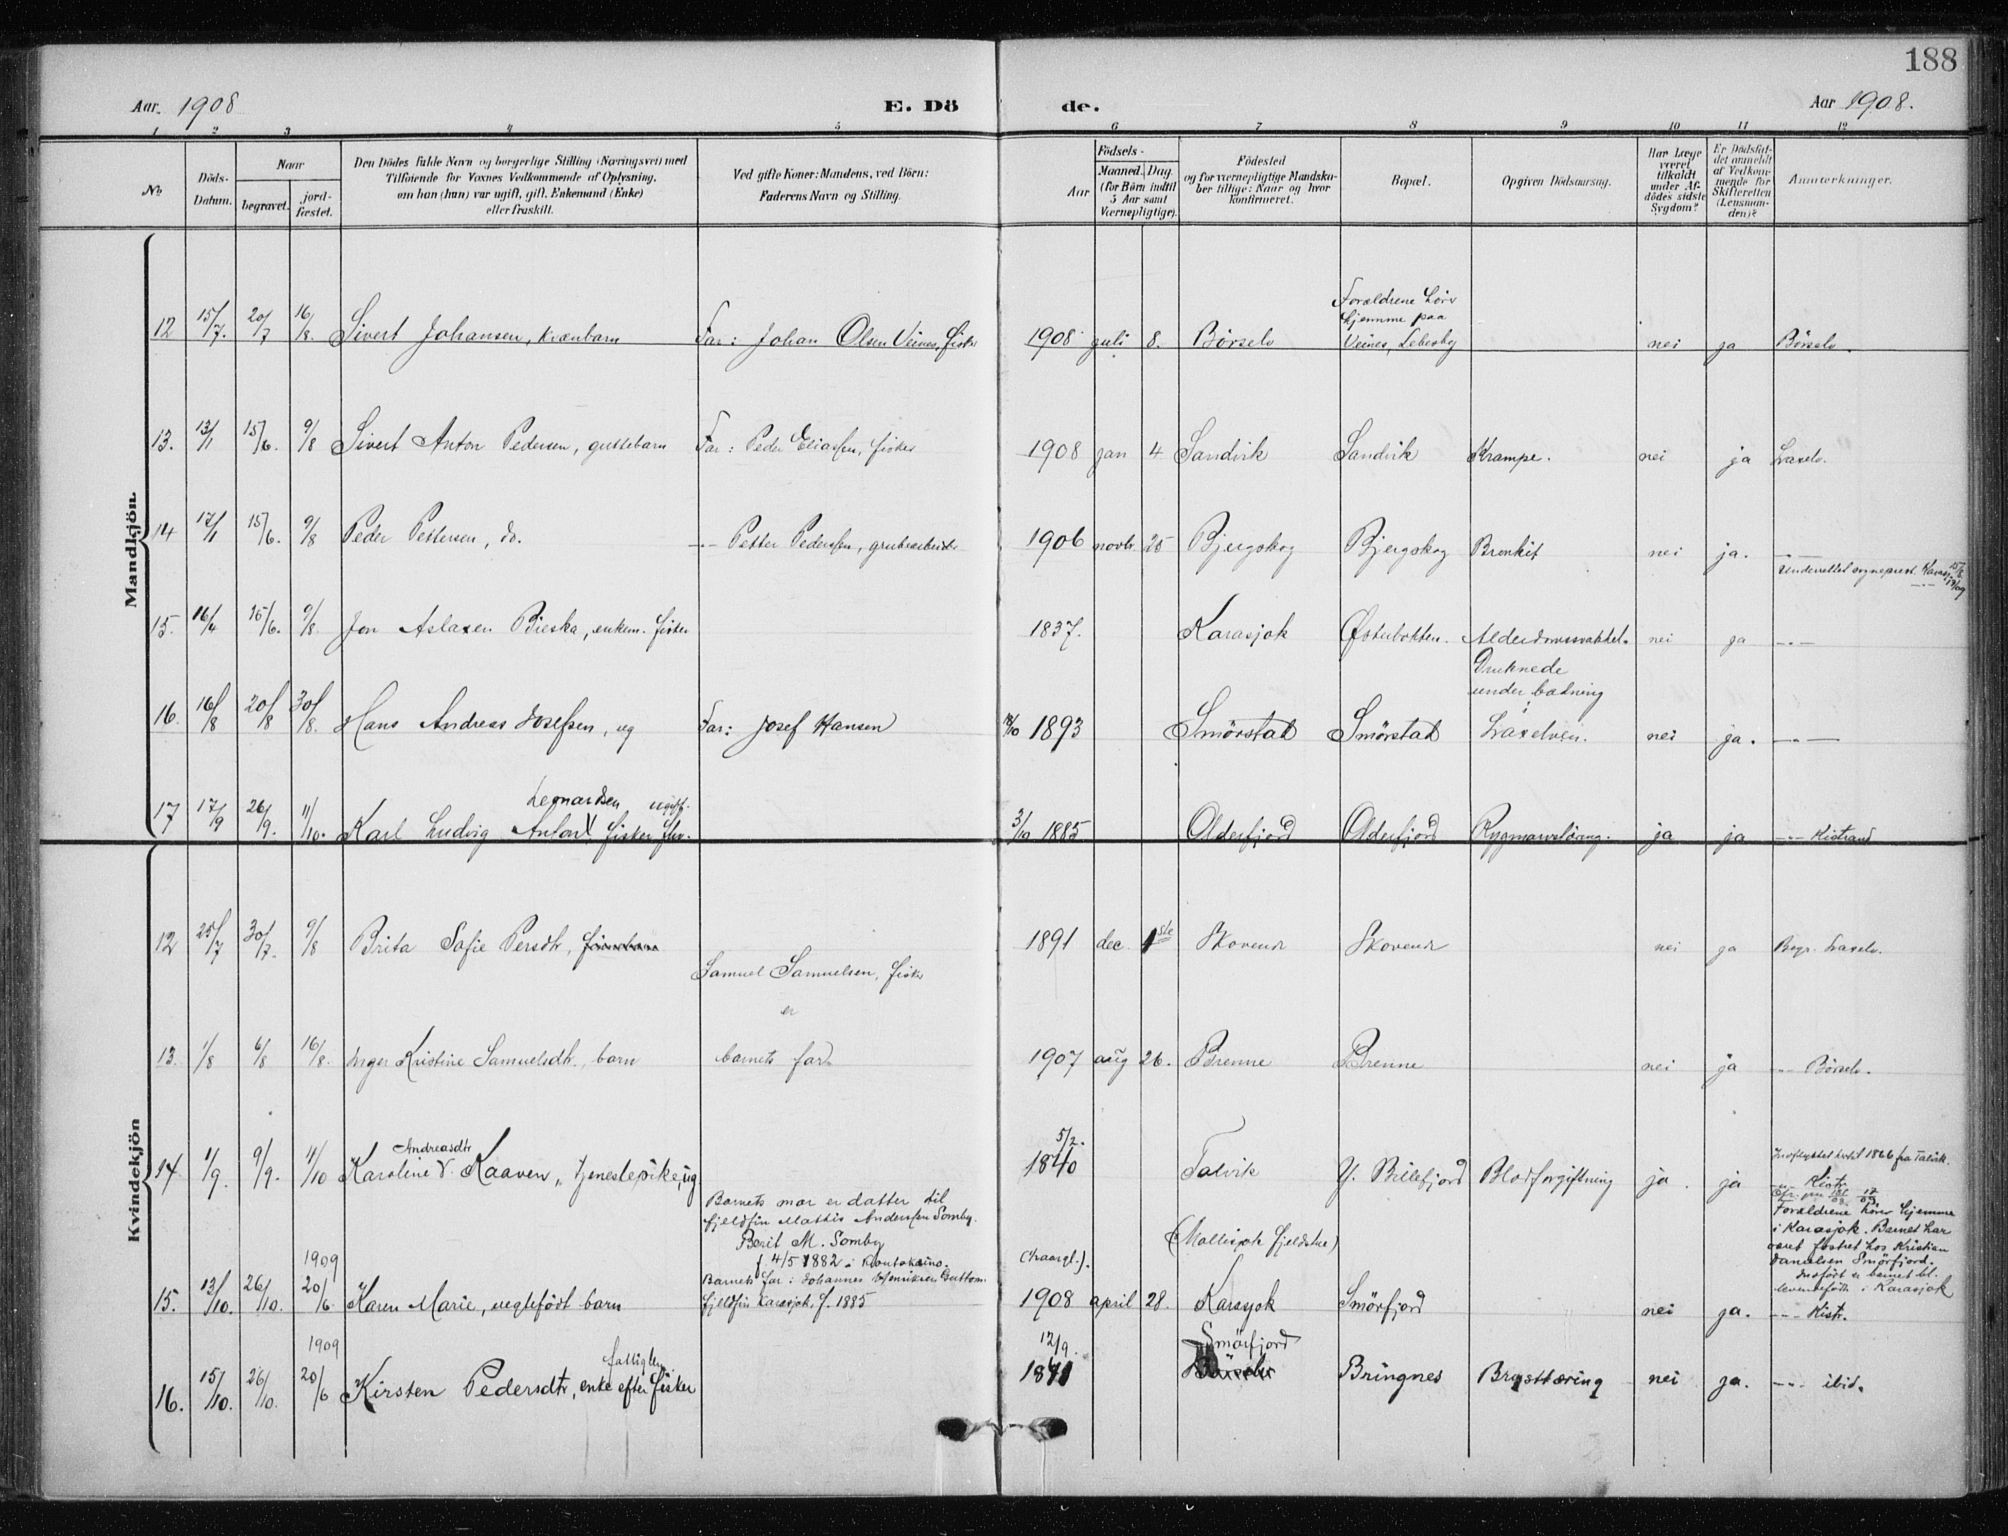 188
Aar. 1908
E. Dö
de.
Aar 1908.
1 2 3 4 5 6 7 8 9 10 11 12
No
Döds-Datum.
Naar
begravet.
jord-fæstet.
Den Dödes fulde Navn og borgerlige Stilling (Næringsvei) med
Tilföiende for Voxnes Vedkommende af Oplysning,
om han (hun) var ugift, gift, Enkemand (Enke)
eller fraskilt.
Ved gifte Koner: Mandens, ved Börn:
Faderens Navn og Stilling.
Födsels-
Aar
Maaned. Dag.
(for Börn indtil
5 Aar samt
Værnepligtige).
Födested
og for værnepligtige Mandska-
ber tillige: Naar og hvor
konfirmeret.
Bopæl.
Opgiven Dödsaarsag.
Har Læge
været
tilkaldt
under Af-
dödes sidste
Sygdom?
Er Dödsfal-
det anmeldt
af Vedkom-
mende for
Skifteretten
(Lensman-
den)?
Anmærkninger.
Mandkjön.
Forældrene hører
hjemme paa
12 15/7. 20/7 16/8. Sivert Johansen, Far: Johan Olsen Veines, fisker 1908 juli 8. Börselv Veines, Lebesby nei ja Börselv.
13. 13/1 15/6. 9/8 Sivert Anton Pedersen, guttebarn Far: Peder Eliassen, fisker 1908 jan 4 Sandvik Sandvik Krampe. nei ja Laxelv.
14 17/1 15/6. 9/8 Peder Pettersen, do. -"- Petter Pederssen, grubearbeider 1906 novbr. 25 Bjergskog Bjergskog Bronkit nei ja. -"-
Underrettet sogneprest. Karasj.
15. 16/4 15/6. 9/8. Jon Aslaxen Bieska, enkem. fisker 1837. Karasjok Østerbotten. Alderdomssvakhet. nei ja -"-
Druknede
under badning
i
16. 16/8 20/8 30/8. Hans Andreas Josefsen, ug Far: Josef Hansen 18/10 1893 Smörstad Smörstad Laxelven. nei ja. -"-
Leonardsen ugift.
17 17/9 26/9. 11/10. Karl Ludvig Anton V fisker 3/10 1885 Olderfjord Olderfjord Rygmarvslidning. ja ja -"- Kistrand
Kvindekjön
12 25/7 30/7. 9/8 Brita Sofie Persdtr, 1891 dec 1ste Skoveur Skoveur nei ja Begr. Laxelv.
Samuel Samuelsen, fisker
er
13. 1/8 6/8 16/8. Inger Kristine Samuelsdtr., barn barnets far. 1907 aug 26. Brenne Brenne nei ja -"- Börselv.
Andreasdtr 5/2.
14 1/9. 9/9. 11/10 Karoline V. Kaaven, tjenestepike, ug 1840 Talvik Y. Billefjord Blodforgiftning ja. ja Indflyttet hertil 1866 fra Talvik.
-"- Kistr.
Barnets mor er datter til
fjeldfin Mattis Anderssen Somby.
Berit M. Somby
f. 4/5 1882 i Kautokeino.
Barnets far: Johannes Henriksen Guttorm
fjeldfin Karasjok, f. 1885
(Mollisjok fjeldstue)
Forældrene hører hjemme
i Karasjok. Barnet har
været fostret hos Kristian
Danielsen Smörfjord.
Indført er barnet bl.
levendefødte i Karasjok
1909
15. 13/10. 26/10. 20/6. Karen Marie, uegtefödt barn 1908 april 28. Karasjok Smörfjord nei ja. -"- Kistr.
1909 fattiglem 12/9. Smörfjord
16. 15/10. 26/10. 20/6 Kirsten Pedersdtr, enke efter fisker 1841 Börselv Bringnes Brysttæring nei ja. -"- ibid.